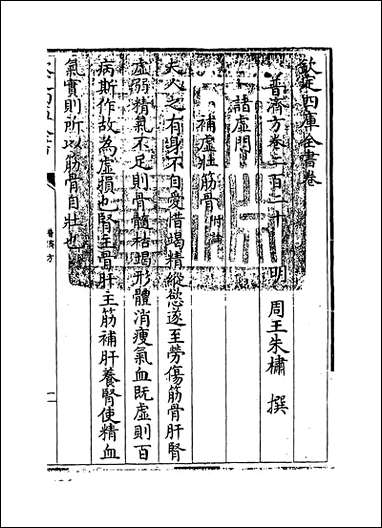 欽定四庫全書卷
普濟方卷二百二十 明 周王朱橚 撰
諸虚門
補虚壯筋骨 附論
夫人之有身不自愛惜竭精縱慾遂至勞傷筋骨肝腎
虚弱精氣不足則骨髓枯竭形體消瘦氣血既虚則百
病斯作故為虚損也腎主骨肝主筋補肝養腎使精血
氣實則所以筋骨自壯也
普濟方